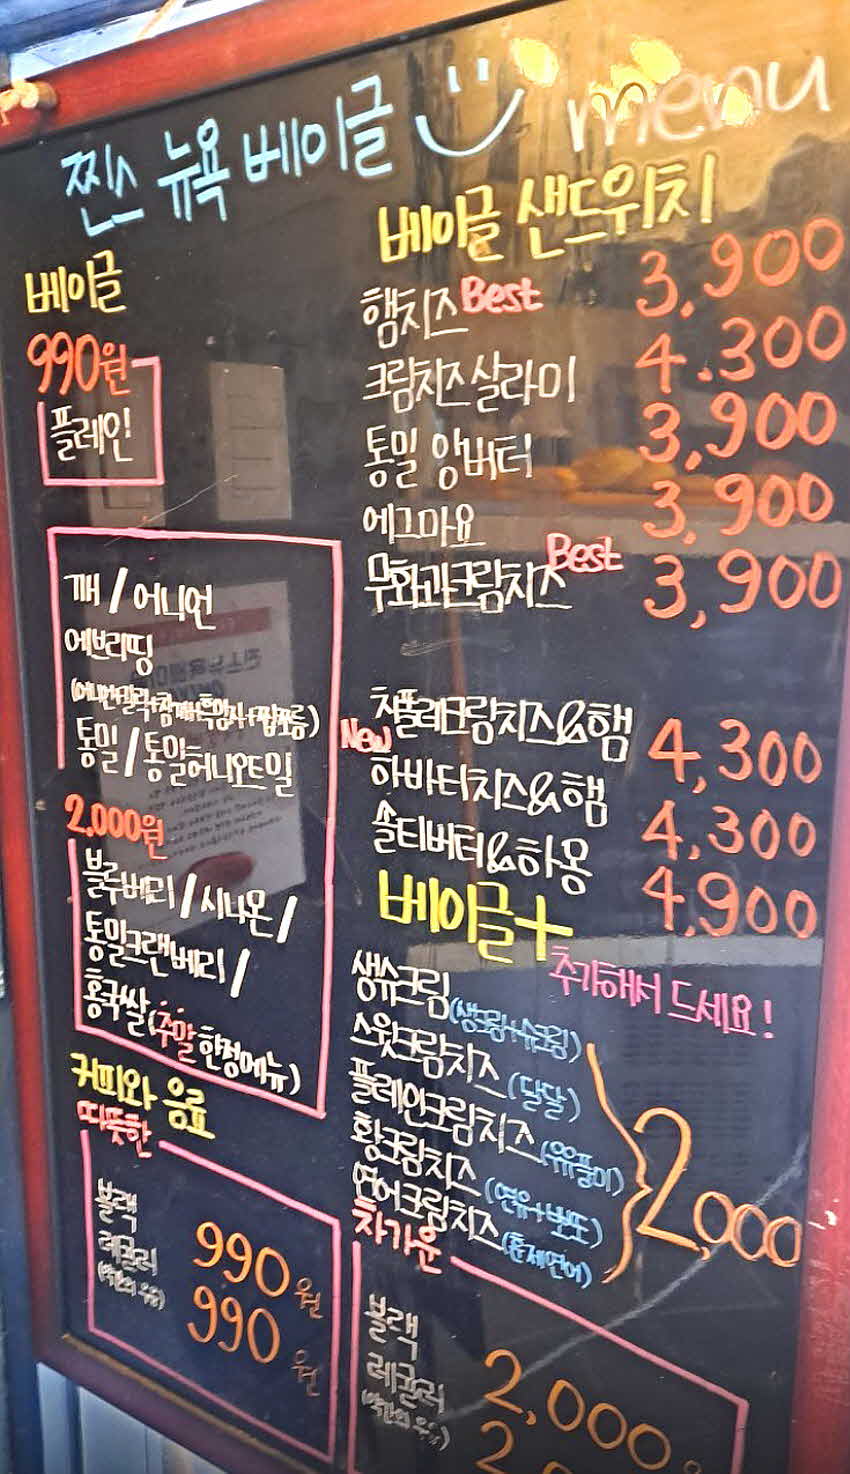 찐스 뉴욕 베이글 menu
베이글
990원
플레인
깨 / 어니언
에브리띵
통밀 / 통밀허니오트밀
2,000원
블루베리 / 시나몬 /
통밀크랜베리 /
홍국쌀 (주말 한정메뉴)
커피와 음료
따뜻한
블랙 990원
레귤러 990원
(약간의 우유)
베이글 샌드위치
햄치즈 Best 3,900
크림치즈살라미 4.300
통밀 앙버터 3,900
에그마요 3,900
무화과크림치즈 Best 3,900
New
차플레크랑치즈&햄 4,300
하바티치즈&햄 4,300
솔티버터&하몽 4,900
베이글+
추가해서 드세요!
생슈크림 (생크림+슈크림)
스윗크림치즈 (달달)
플레인크림치즈
황크림치즈
연어크림치즈 (훈제연어)
2,000
차가운
블랙 2,000원
레귤러
(약간의 우유)